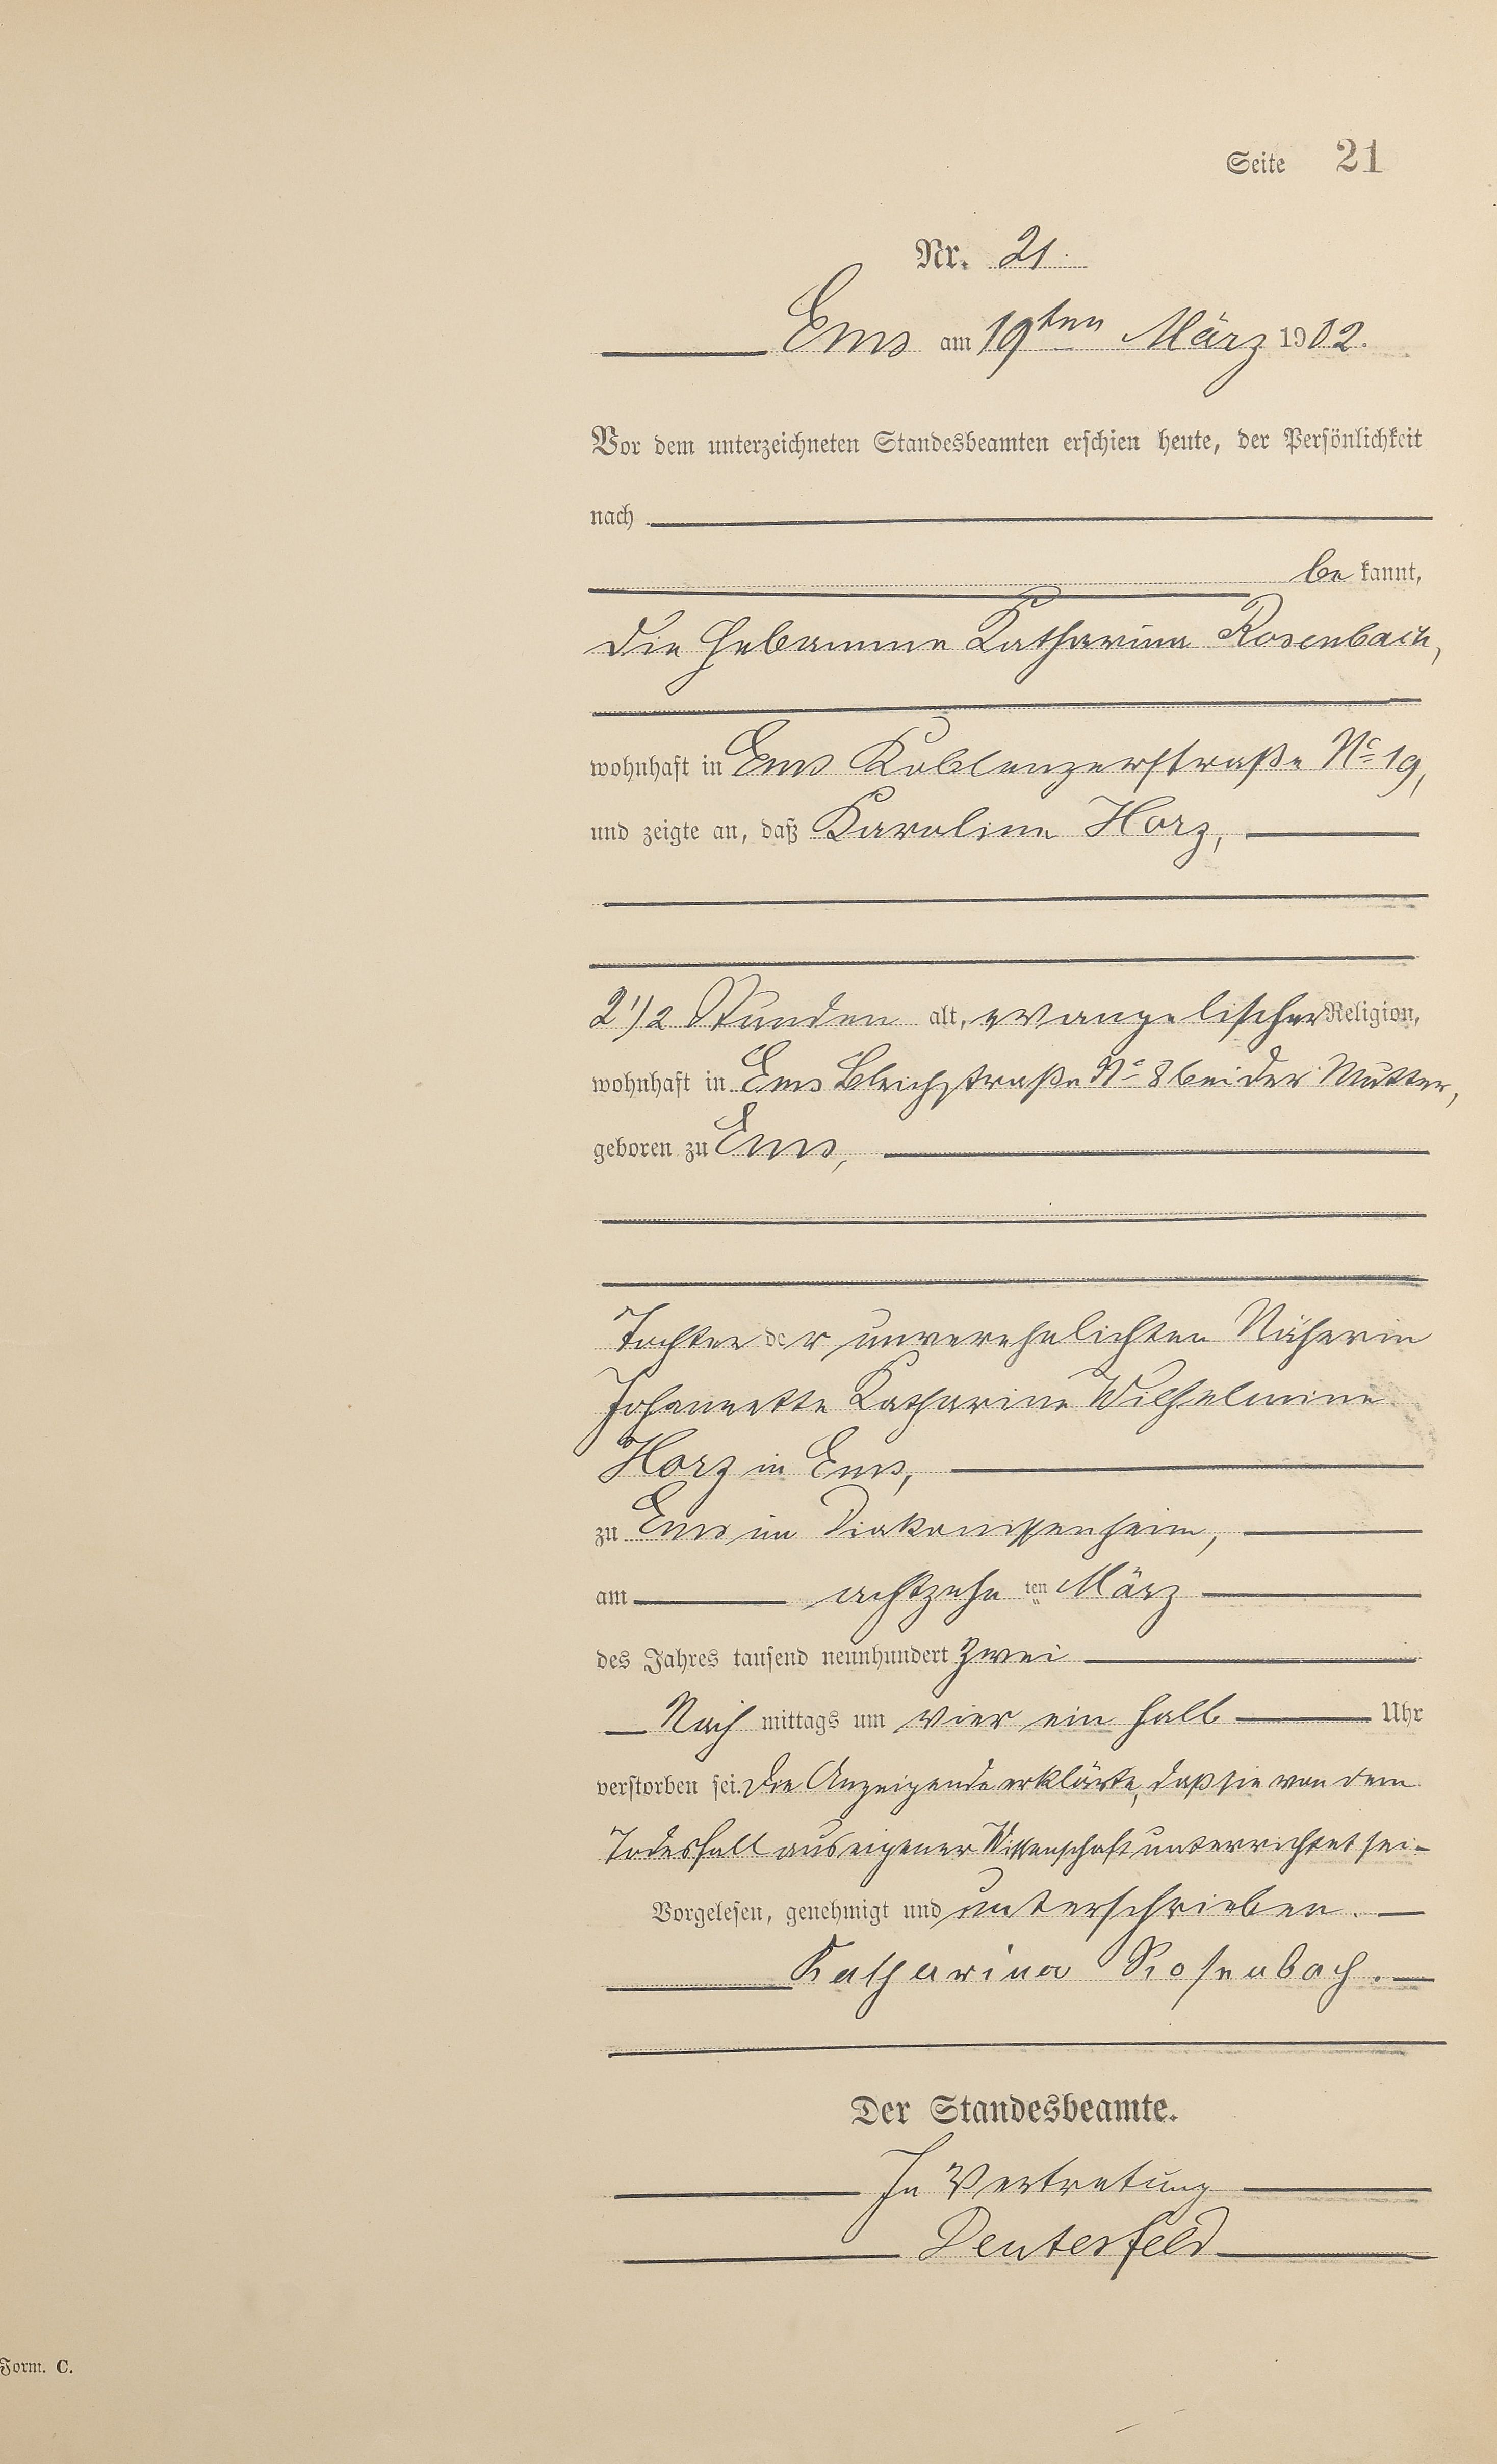 Seite 21
Nr. 21.
Ems am 19ten März 1902.
Vor dem unterzeichneten Standesbeamten erschien heute, der Persönlichkeit
nach
be kannt,
die Hebamme Katharina Rosenbach,
wohnhaft in Ems Koblenzerstraße No 19,
und zeigte an, daß Karoline Horz,
2 1/2 Stunden alt, evangelischer Religion,
wohnhaft in Ems Bleichstraße No 8 bei der Mutter,
geboren zu Ems,
Tochter der unverehelichten Näherin
Johannette Katharine Wilhelmine
Horz in Ems,
zu Ems im Diakonissenheim,
am achtzehnten März
des Jahres tausend neunhundert zwei
Nach mittags um vier ein halb Uhr
verstorben sei. Die Anzeigende erklärte, daß sie von dem
Todesfall aus eigener Wissenschaft unterrichtet sei.
Vorgelesen, genehmigt und unterschrieben.
Katharina Rosenbach.
Der Standesbeamte.
In Vertretung
Deuterfeld
Form. C.